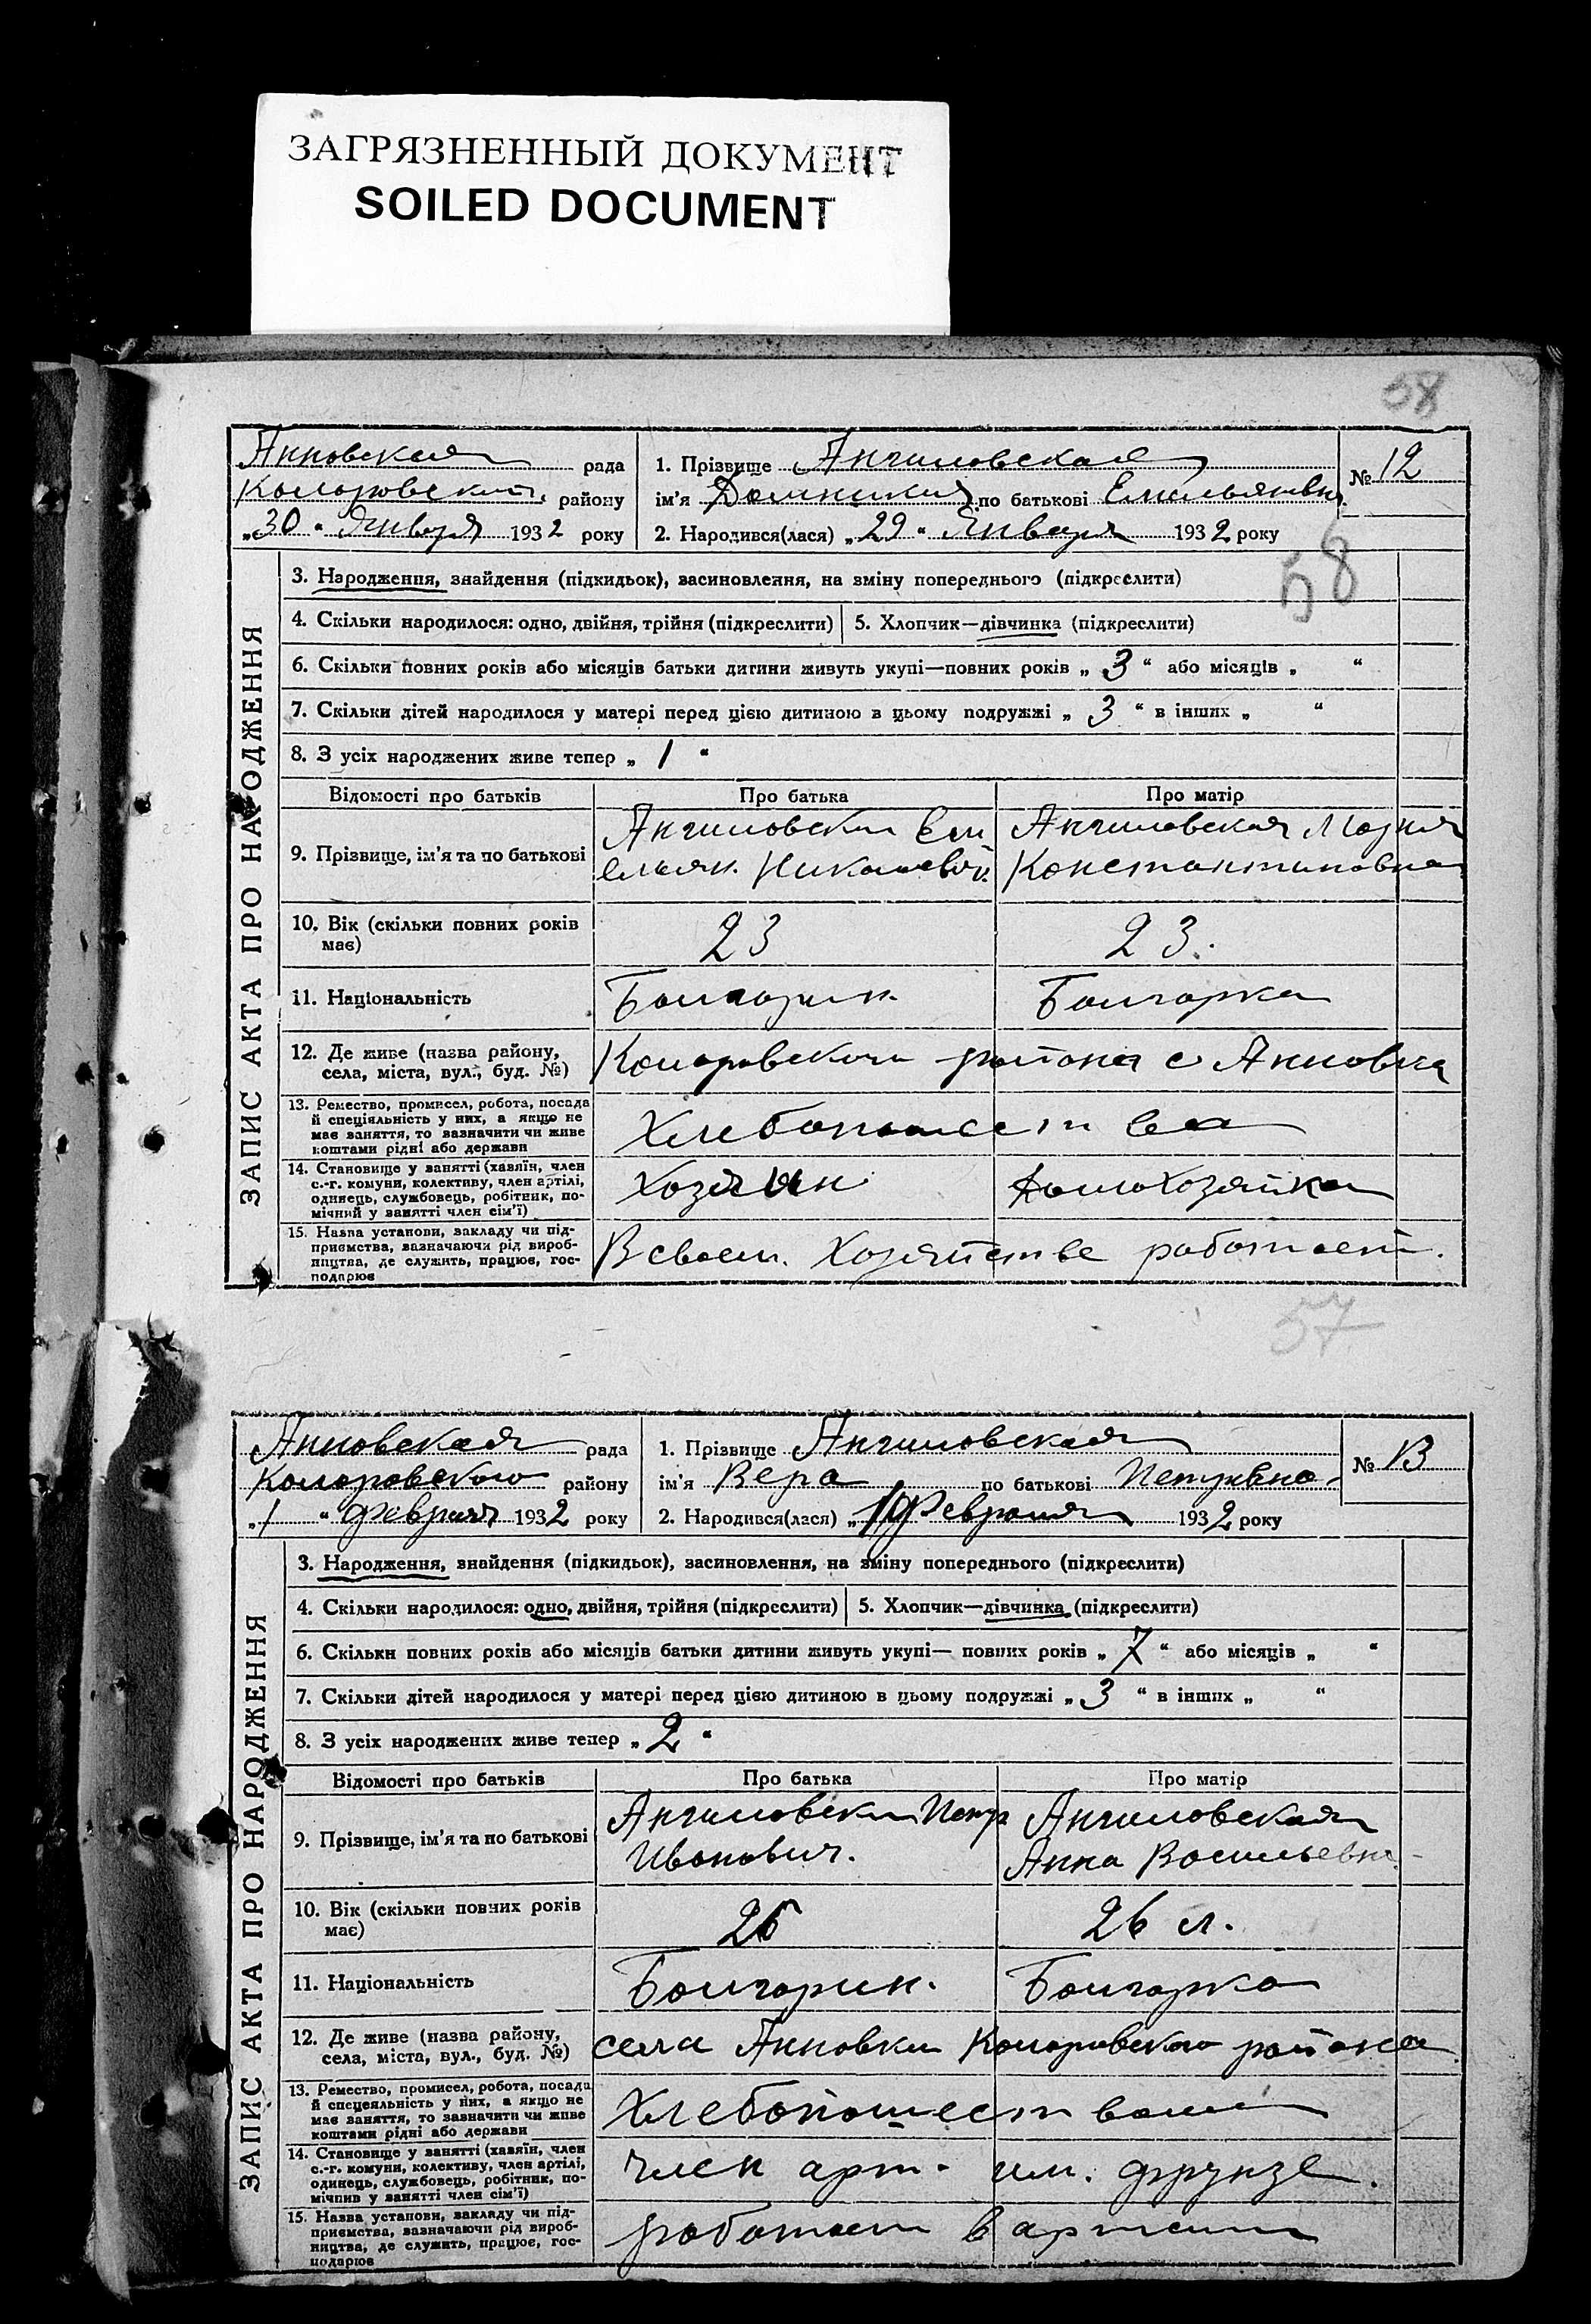 ЗАГРЯЗНЕННЫЙ ДОКУМЕНТ
SOILED DOCUMENT
58
Анновская рада
Коларовский району
„30“ Января 1932 року
1. Прізвище Ангиловская
ім'я Домникия по батькові Емильяновн.
2. Народився(лася) „29“ Января 1932 року
№ 12
58
ЗАПИС АКТА ПРО НАРОДЖЕННЯ
3. Народження, знайдення (підкидьок), засиновлення, на зміну попереднього (підкреслити)
4. Скільки народилося: одно, двійня, трійня (підкреслити) 5. Хлопчик—дівчинка (підкреслити)
6. Скільки повних років або місяців батьки дитини живуть укупі—повних років „3“ або місяців „ “
7. Скільки дітей народилося у матері перед цією дитиною в цьому подружжі „3“ в інших „ “
8. З усіх народжених живе тепер „1“
Відомості про батьків Про батька Про матір
9. Прізвище, ім'я та по батькові
Ангиловски Ем
ельян. Николаевич.
Ангиловская Мария
Константиновна
10. Вік (скільки повних років
має)
23 23.
11. Національність Болгарин. Болгарка
12. Де живе (назва району,
села, міста, вул., буд. №)
Коларовского района с Анновка
13. Ремество, промисел, робота, посада
й спеціяльність у них, а якщо не
має заняття, то зазначити чи живе
коштами рідні або держави
14. Становище у занятті (хазяїн, член
с.-г. комуни, колективу, член артілі,
одинець, службовець, робітник, по-
мічний у занятті член сім'ї)
Хозяин домохозяйка
15. Назва установи, закладу чи під-
приємства, зазначаючи рід вироб-
ництва, де служить, працює, гос-
подарює
В своем. Хозяйстве работает.
57
Анновская рада
Коларовского району
„1“ Февраля 1932 року
1. Прізвище Ангиловская
ім'я Вера по батькові Петровна.
2. Народився(лася) „1“ Февраля 1932 року
№ 13
ЗАПИС АКТА ПРО НАРОДЖЕННЯ
3. Народження, знайдення (підкидьок), засиновлення, на зміну попереднього (підкреслити)
4. Скільки народилося: одно, двійня, трійня (підкреслити) 5. Хлопчик—дівчинка (підкреслити)
6. Скільки повних років або місяців батьки дитини живуть укупі— повних років „7“ або місяців „ “
7. Скільки дітей народилося у матері перед цією дитиною в цьому подружжі „3“ в інших „ “
8. З усіх народжених живе тепер „2“
Відомості про батьків Про батька Про матір
9. Прізвище, ім'я та по батькові
Ангиловски Петр
Иванович.
Ангиловская
Анна Васильевна.
10. Вік (скільки повних років
має)
26 26 л.
11. Національність Болгарин. Болгарка
12. Де живе (назва району,
села, міста, вул., буд. №)
села Анновки Коларовского района
13. Ремество, промисел, робота, посада
й спецеяльність у них, а якщо не
має заняття, то зазначити чи живе
коштами рідні або держави
14. Становище у занятті (хазяїн, член
с.-г. комуни, колективу, член артілі,
одинець, службовець, робітник, по-
мічнив у занятті член сім'ї)
Член арт. им. Фрунзе.
15. Назва установи, закладу чи під-
приємства, зазначаючи рід вироб-
ництва, де служить, працює, гос-
подарює
работает в артели